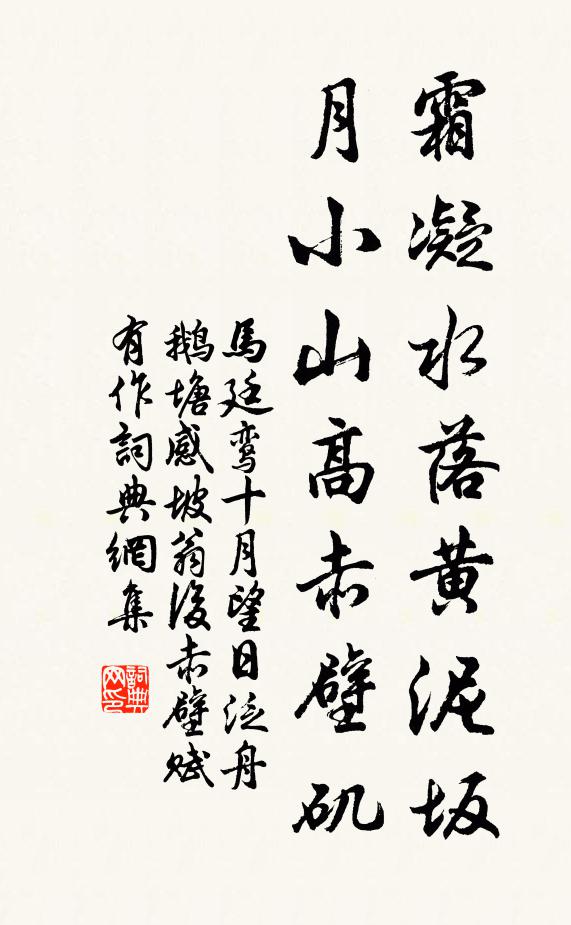 霜凝水落黄泥坂
月小山高赤壁矶
馬廷鸾十月望日泛舟
鵝塘感坡翁後赤壁赋
有作詞典網集
詞典网印